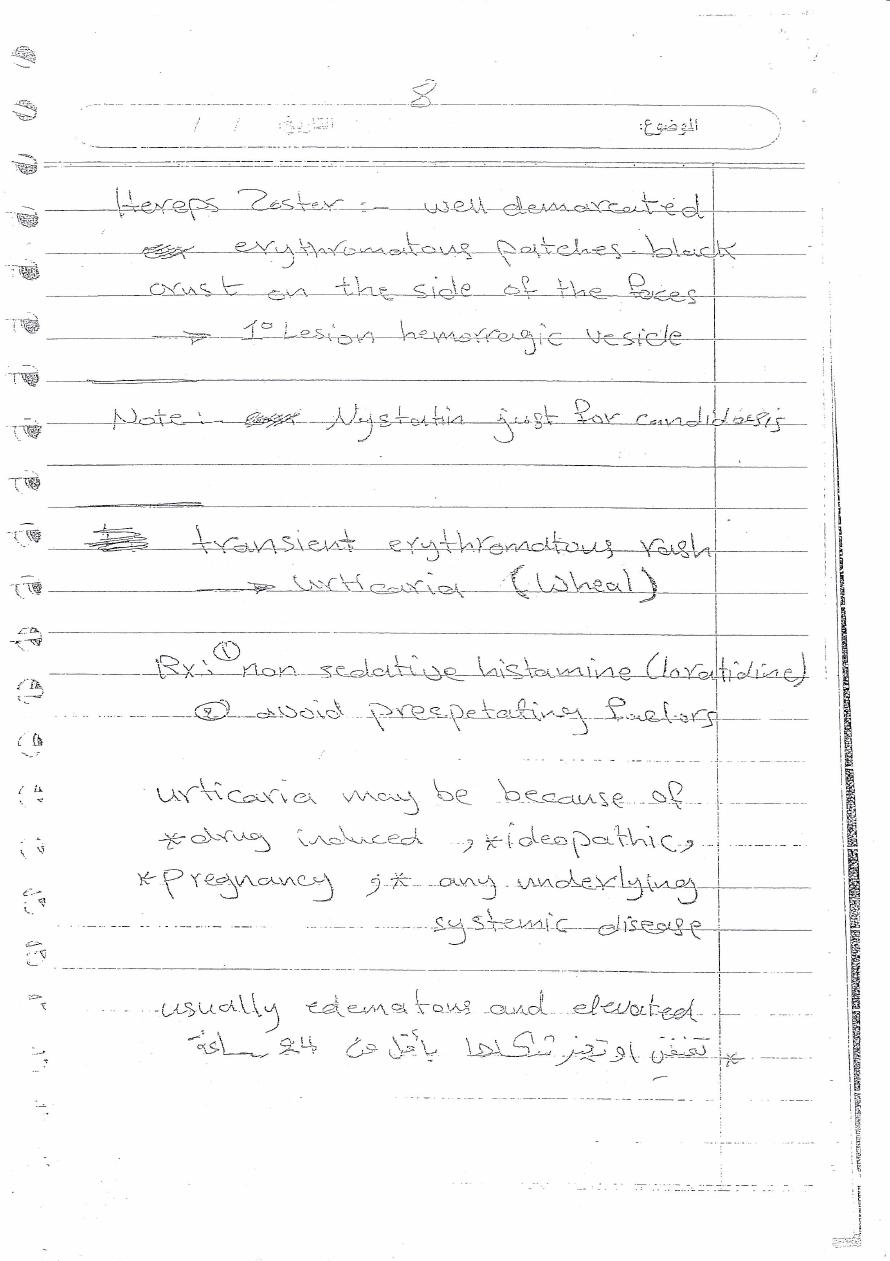 8
الموضوع: التاريخ: / /
Hereps Zoster :- well demarcated
erythromatous patches black
crust on the side of the faces
→ 1° Lesion hemorragic vesicle
Note :- Nystatin just for candidiasis
transient erythromatous rash
→ urticaria (Wheal)
Rx: ① non sedative histamine (loratidine)
② avoid prespetating factors
urticaria may be because of
*drug induced , *ideopathic,
*pregnancy , * any underlying
systemic disease
usually edematous and elevated
* او شكلها بأقل من 24 ساعة